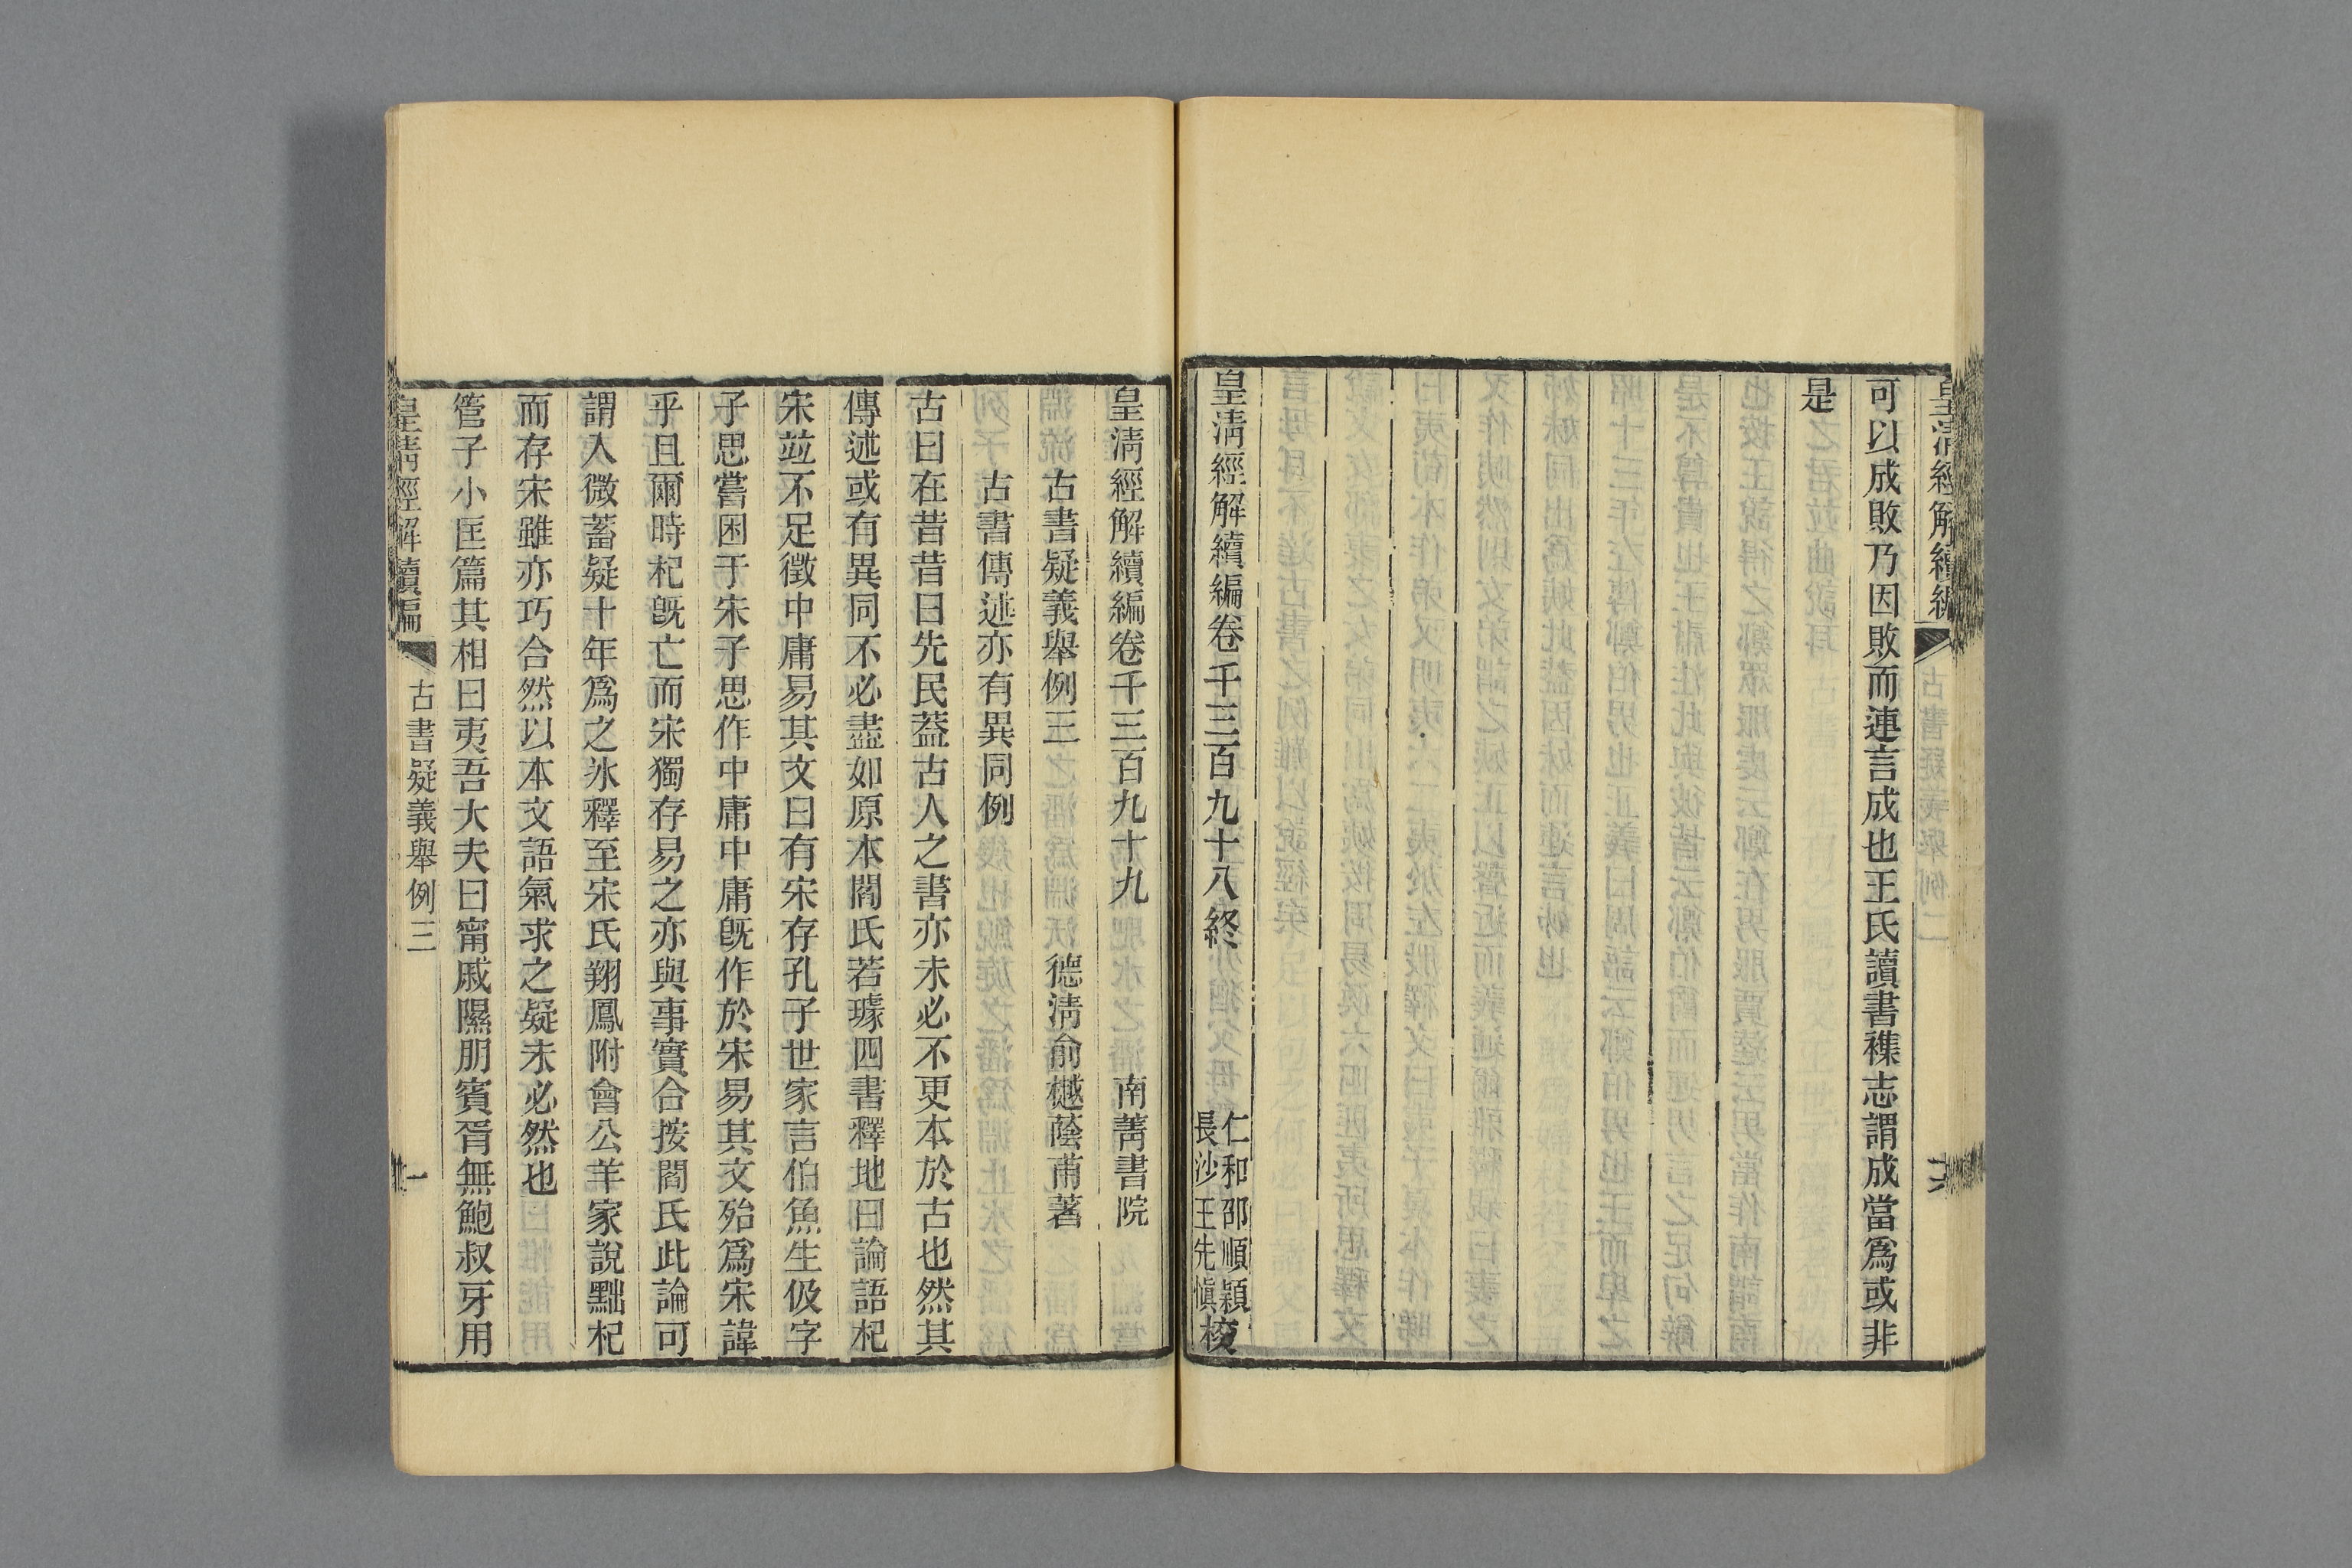 皇清經解續編
古書疑義舉例二
十六
可以成敗乃因敗而連言成也王氏讀書襍志謂成當爲或非
是
皇淸經解續編卷千三百九十八終
仁和邵順穎
長沙王先愼校
皇淸經解續編卷千三百九十九
南菁書院
古書疑義舉例三
德淸俞樾蔭甫著
古書傳述亦有異同例
古曰在昔昔曰先民葢古人之書亦未必不更本於古也然其
傳述或有異同不必盡如原本閻氏若璩四書釋地曰論語杞
宋竝不足徵中庸易其文曰有宋存孔子世家言伯魚生伋字
子思嘗困于宋子思作中庸中庸旣作於宋易其文殆爲宋諱
乎且爾時杞旣亡而宋獨存易之亦與事實合按閻氏此論可
謂入微蓄疑十年爲之冰釋至宋氏翔鳳附會公羊家說黜杞
而存宋雖亦巧合然以本文語氣求之疑未必然也
管子小匡篇其相曰夷吾大夫曰甯戚隰朋賓胥無鮑叔牙用
皇清經解續編
古書疑義舉例三
一